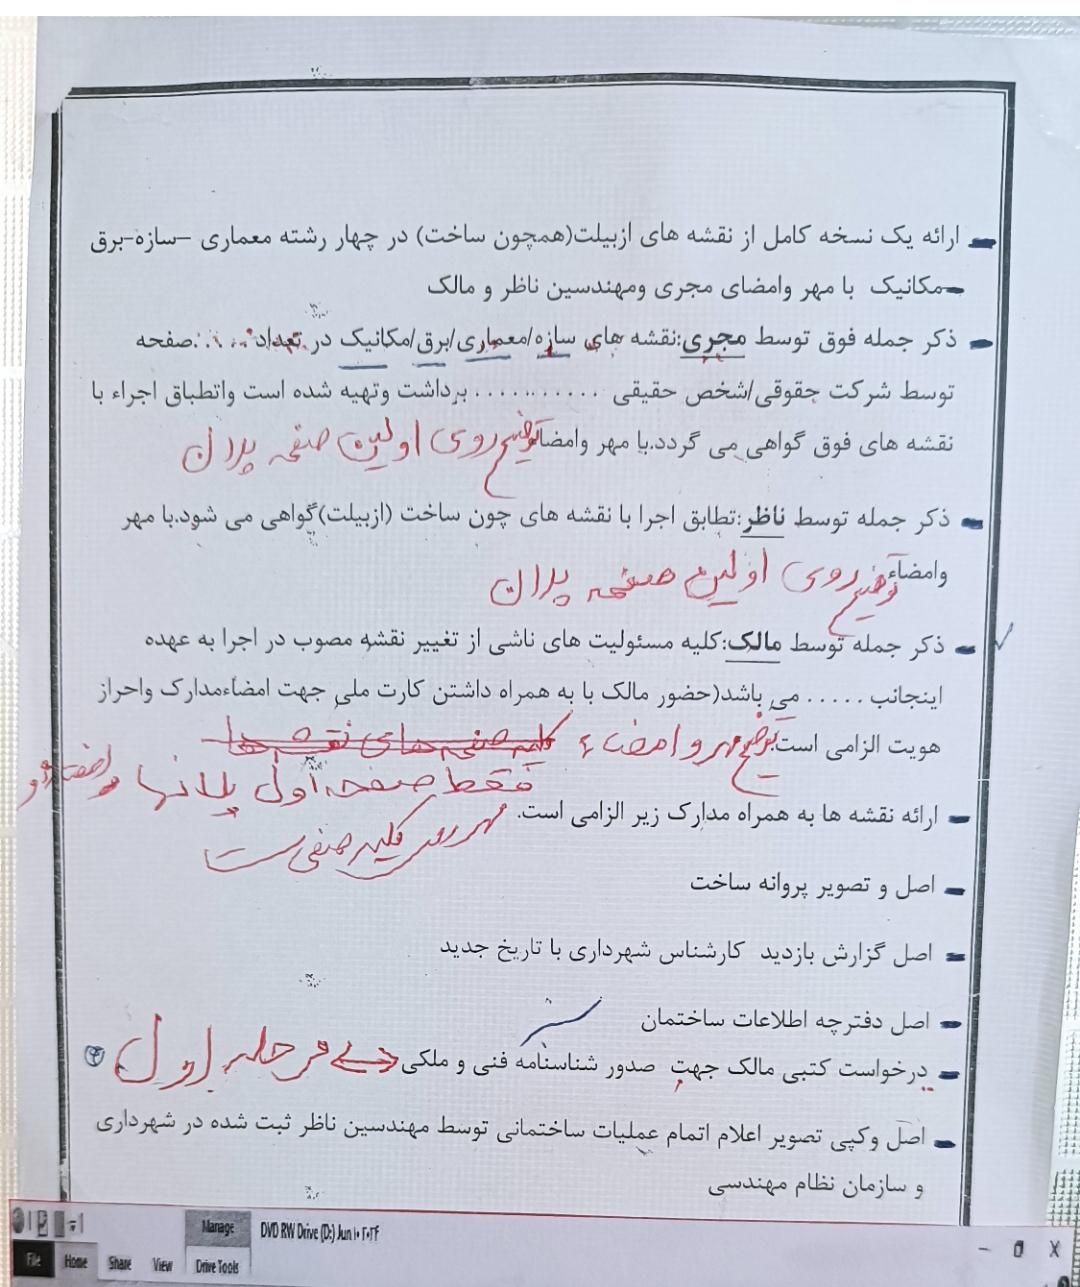 ارائه یک نسخه کامل از نقشه های ازبیلت(همچون ساخت) در چهار رشته معماری –سازه-برق
-مکانیک با مهر وامضای مجری ومهندسین ناظر و مالک
ذکر جمله فوق توسط مجری:نقشه های سازه/معماری/برق/مکانیک در تعداد.....صفحه
توسط شرکت حقوقی/شخص حقیقی ........... برداشت وتهیه شده است وانطباق اجراء با
نقشه های فوق گواهی می گردد.با مهر وامضاء توضیح روی اولین صفحه پلان
ذکر جمله توسط ناظر:تطابق اجرا با نقشه های چون ساخت (ازبیلت)گواهی می شود.با مهر
وامضاء توضیح روی اولین صفحه پلان
ذکر جمله توسط مالک:کلیه مسئولیت های ناشی از تغییر نقشه مصوب در اجرا به عهده
اینجانب ..... می باشد(حضور مالک با به همراه داشتن کارت ملی جهت امضاءمدارک واحراز
هویت الزامی است. توضیح مهر و امضاء کلیه صفحه های نقشه ها
فقط صفحه اول پلانها و امضاء و
ارائه نقشه ها به همراه مدارک زیر الزامی است.
مهر روی کلیه صفحات
اصل و تصویر پروانه ساخت
اصل گزارش بازدید کارشناس شهرداری با تاریخ جدید
اصل دفترچه اطلاعات ساختمان
درخواست کتبی مالک جهت صدور شناسنامه فنی و ملکی مرحله اول
اصل وکپی تصویر اعلام اتمام عملیات ساختمانی توسط مهندسین ناظر ثبت شده در شهرداری
و سازمان نظام مهندسی
Manage DVD RW Drive (D:) Jun ۱۰ ۲۰۲۴
File Home Share View Drive Tools